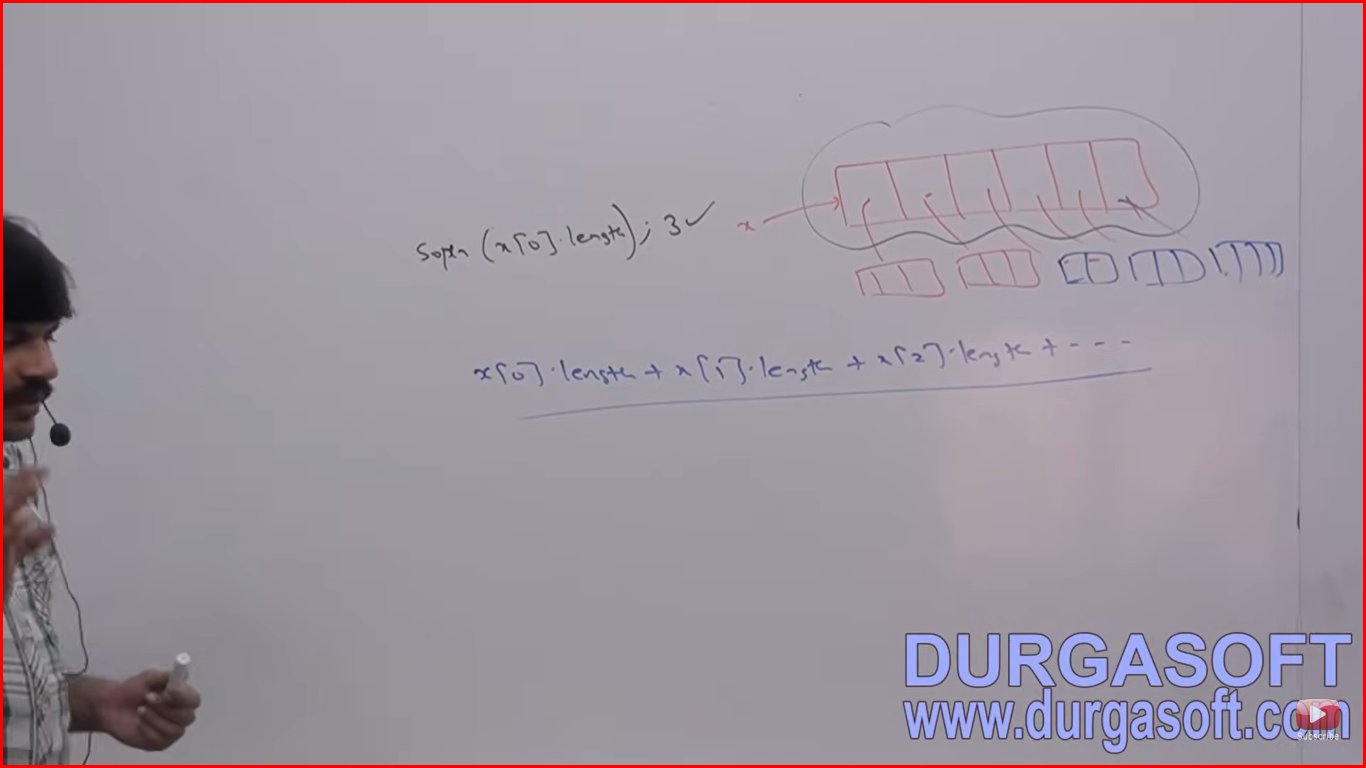 Sopln (x[0].length); 3 ✓
x
x[0].length + x[1].length + x[2].length + - - -
DURGASOFT
www.durgasoft.com
Subscribe